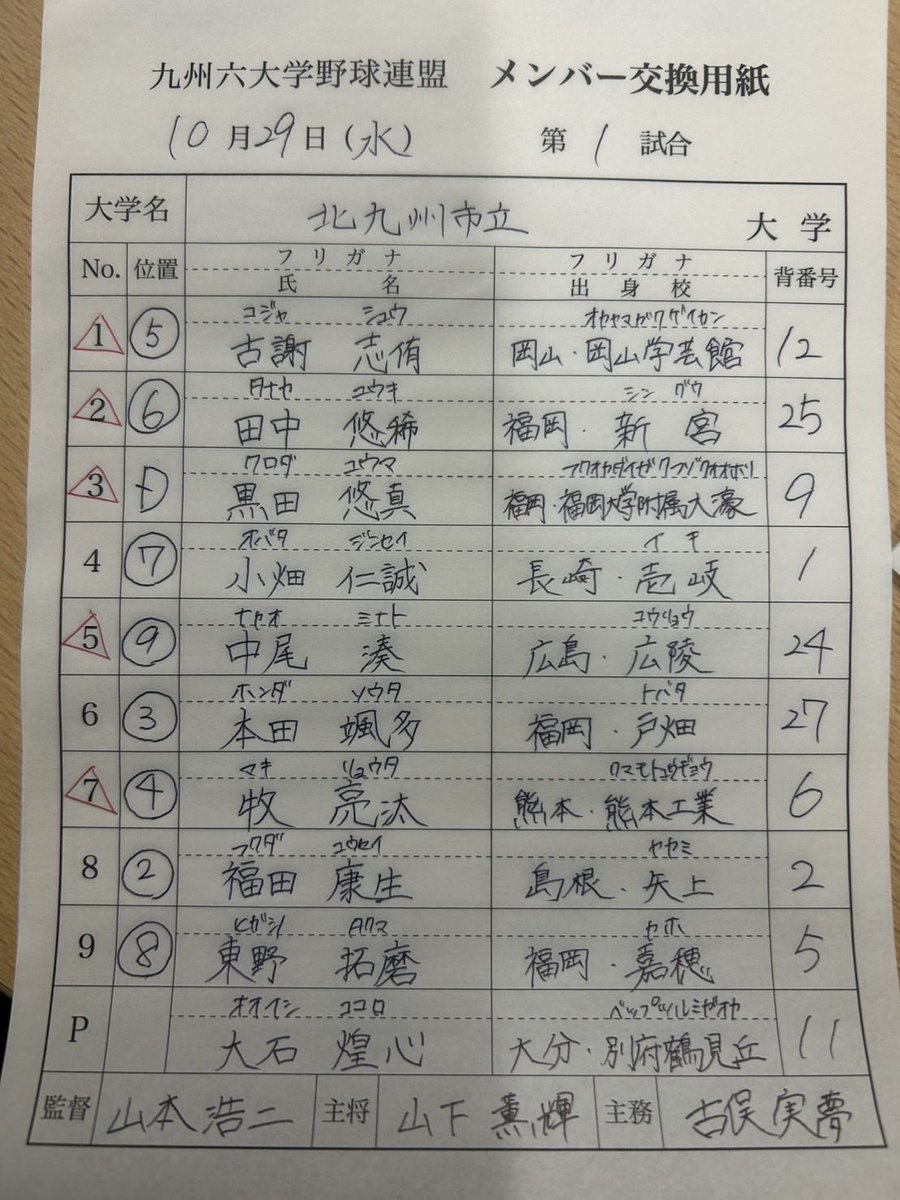 九州六大学野球連盟 メンバー交換用紙
10月29日(水) 第1試合
大学名 北九州市立 大学
No. 位置 フリガナ 氏名 フリガナ 出身校 背番号
コジャ シュウ オカヤマガクゲイカン
1 ⑤ 古謝 志侑 岡山・岡山学芸館 12
タナカ ユウキ シングウ
2 ⑥ 田中 悠稀 福岡・新宮 25
クロダ ユウマ フクオカダイガクフゾクオオホリ
3 D 黒田 悠真 福岡・福岡大学附属大濠 9
オバタ ジンセイ イキ
4 ⑦ 小畑 仁誠 長崎・壱岐 1
ナカオ ミナト コウリョウ
5 ⑨ 中尾 湊 広島・広陵 24
ホンダ ソウタ トバタ
6 ③ 本田 颯多 福岡・戸畑 27
マキ リョウタ クマモトコウギョウ
7 ④ 牧 亮汰 熊本・熊本工業 6
フクダ コウセイ ヤカミ
8 ② 福田 康生 島根・矢上 2
ヒガシノ タクマ カホ
9 ⑧ 東野 拓磨 福岡・嘉穂 5
オオイシ ココロ ベップツルミガオカ
P 大石 煌心 大分・別府鶴見丘 11
監督 山本浩二 主将 山下薫輝 主務 古俣実夢